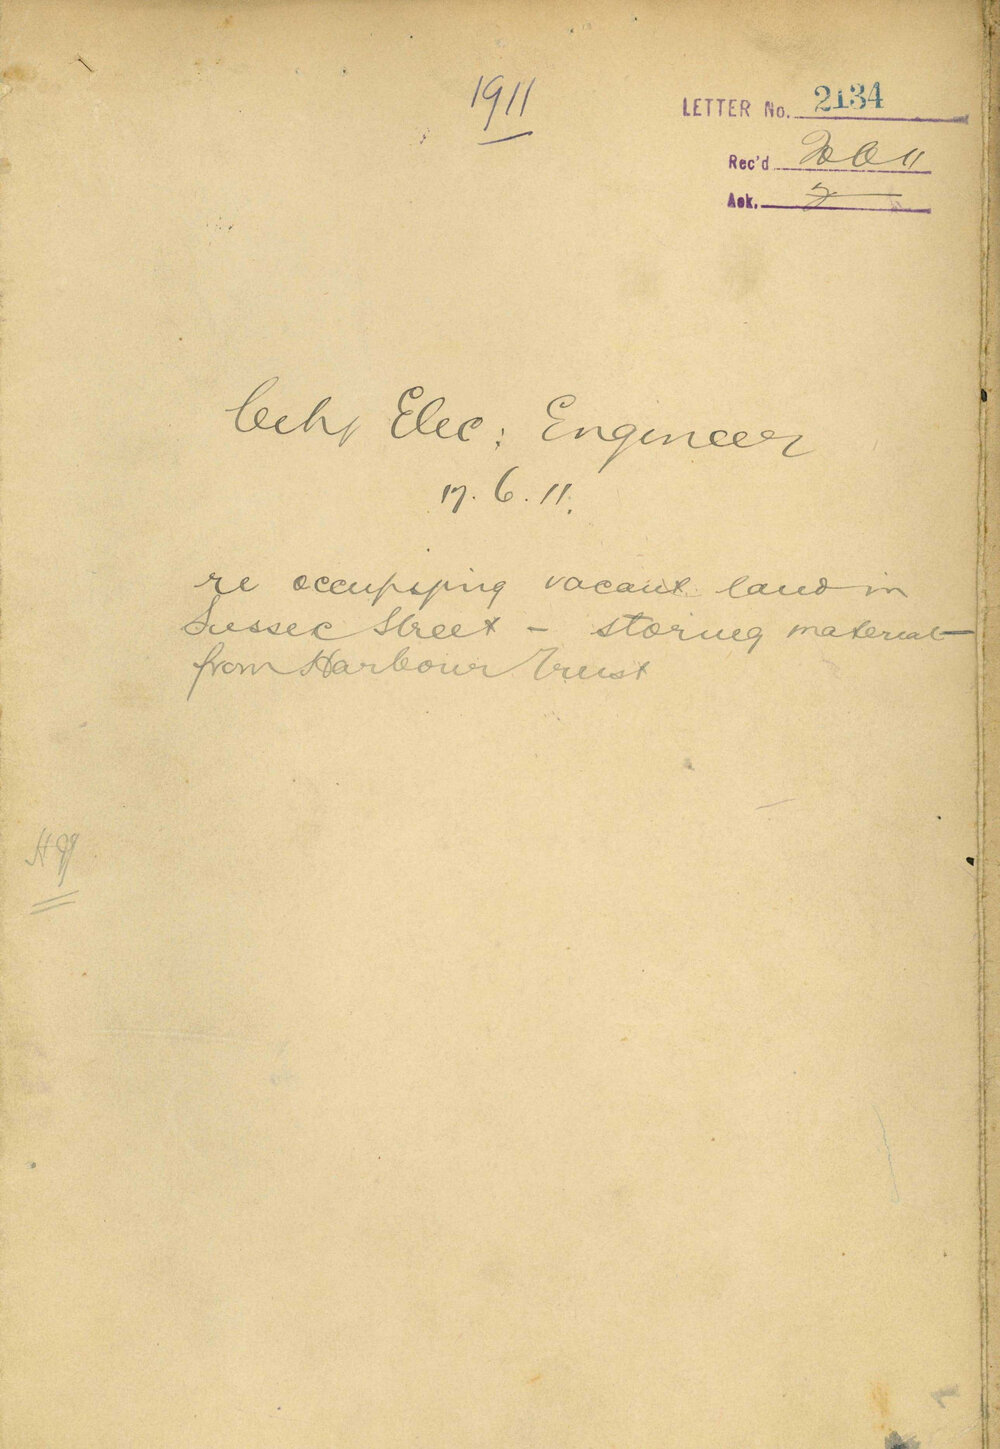 1911
LETTER No. 2134
Rec'd 20 6 11
Ack.
City Elec: Engineer
17. 6. 11.
re occupying vacant land in
Sussex Street - storing material
from Harbour Trust